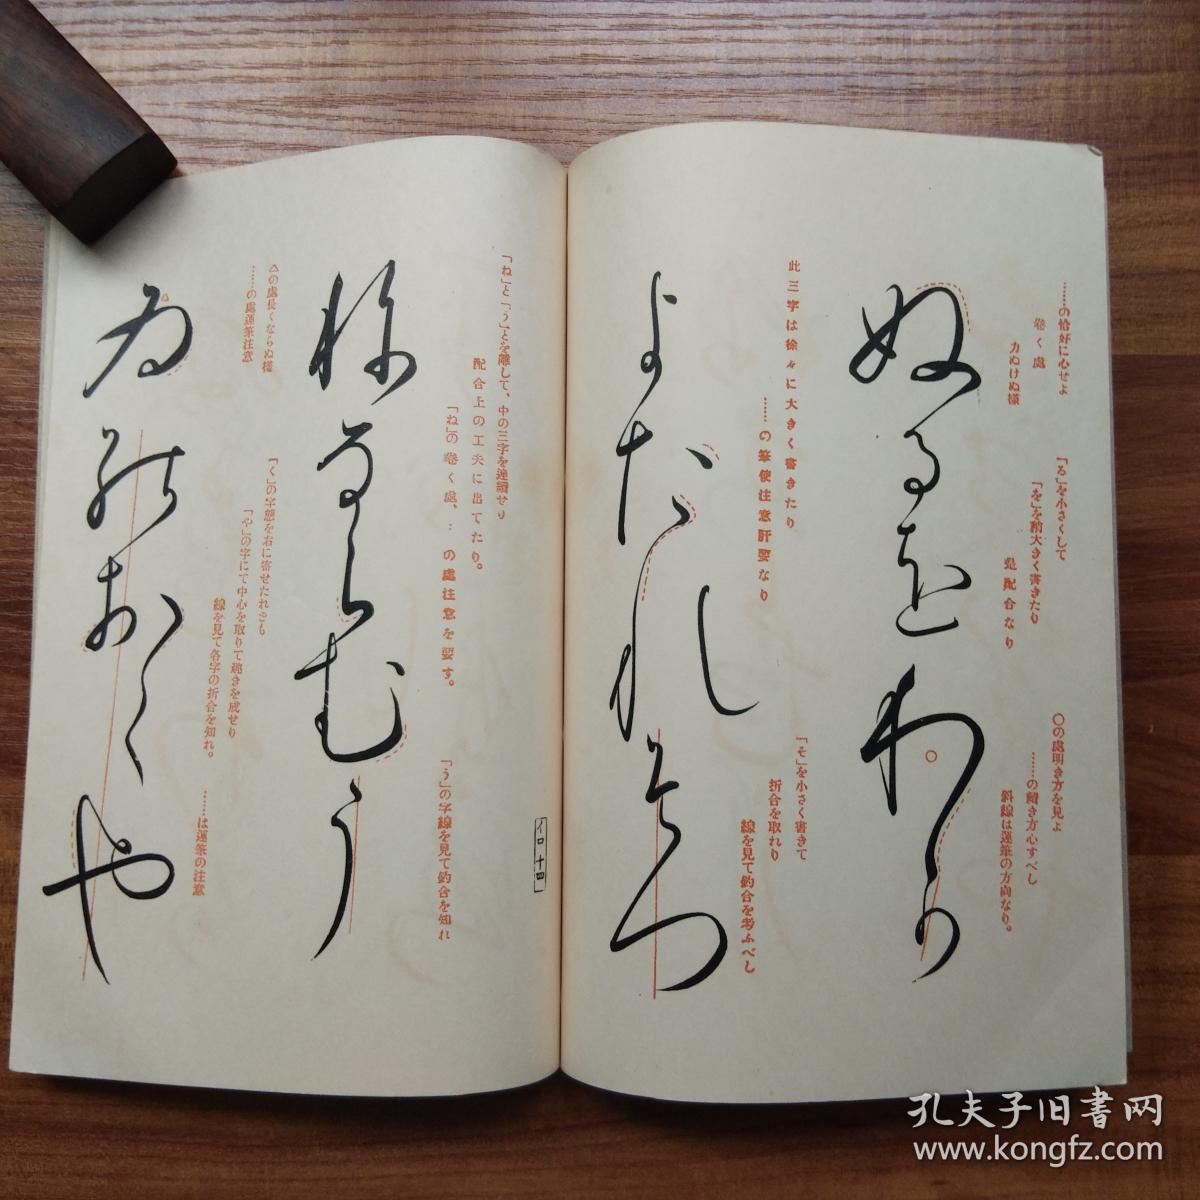 ……の恰好に心せよ
巻く處
力ぬけぬ様
「る」を小さくして
「を」を稍大きく書きたり
是配合なり
〇の處明き方を見よ
……の續き方心すべし
斜線は運筆の方向なり。
ぬるをわか
此三字は徐々に大きく書きたり
……の筆使注意肝要なり
「そ」を小さく書きて
折合を取れり
線を見て釣合を考ふべし
よたれそつ
イロ 十四
「ね」と「う」とを離して、中の三字を連續せり
配合上の工夫に出てたり。
「ね」の巻く處、…の處注意を要す。
「う」の字線を見て釣合を知れ
ねならむう
△の處長くならぬ様
……の處運筆注意
「く」の字態を右に寄せたれども
「や」の字にて中心を取りて跳きを成せり
線を見て各字の折合を知れ。
……は運筆の注意
ゐのおくや
孔夫子旧書网
www.kongfz.com